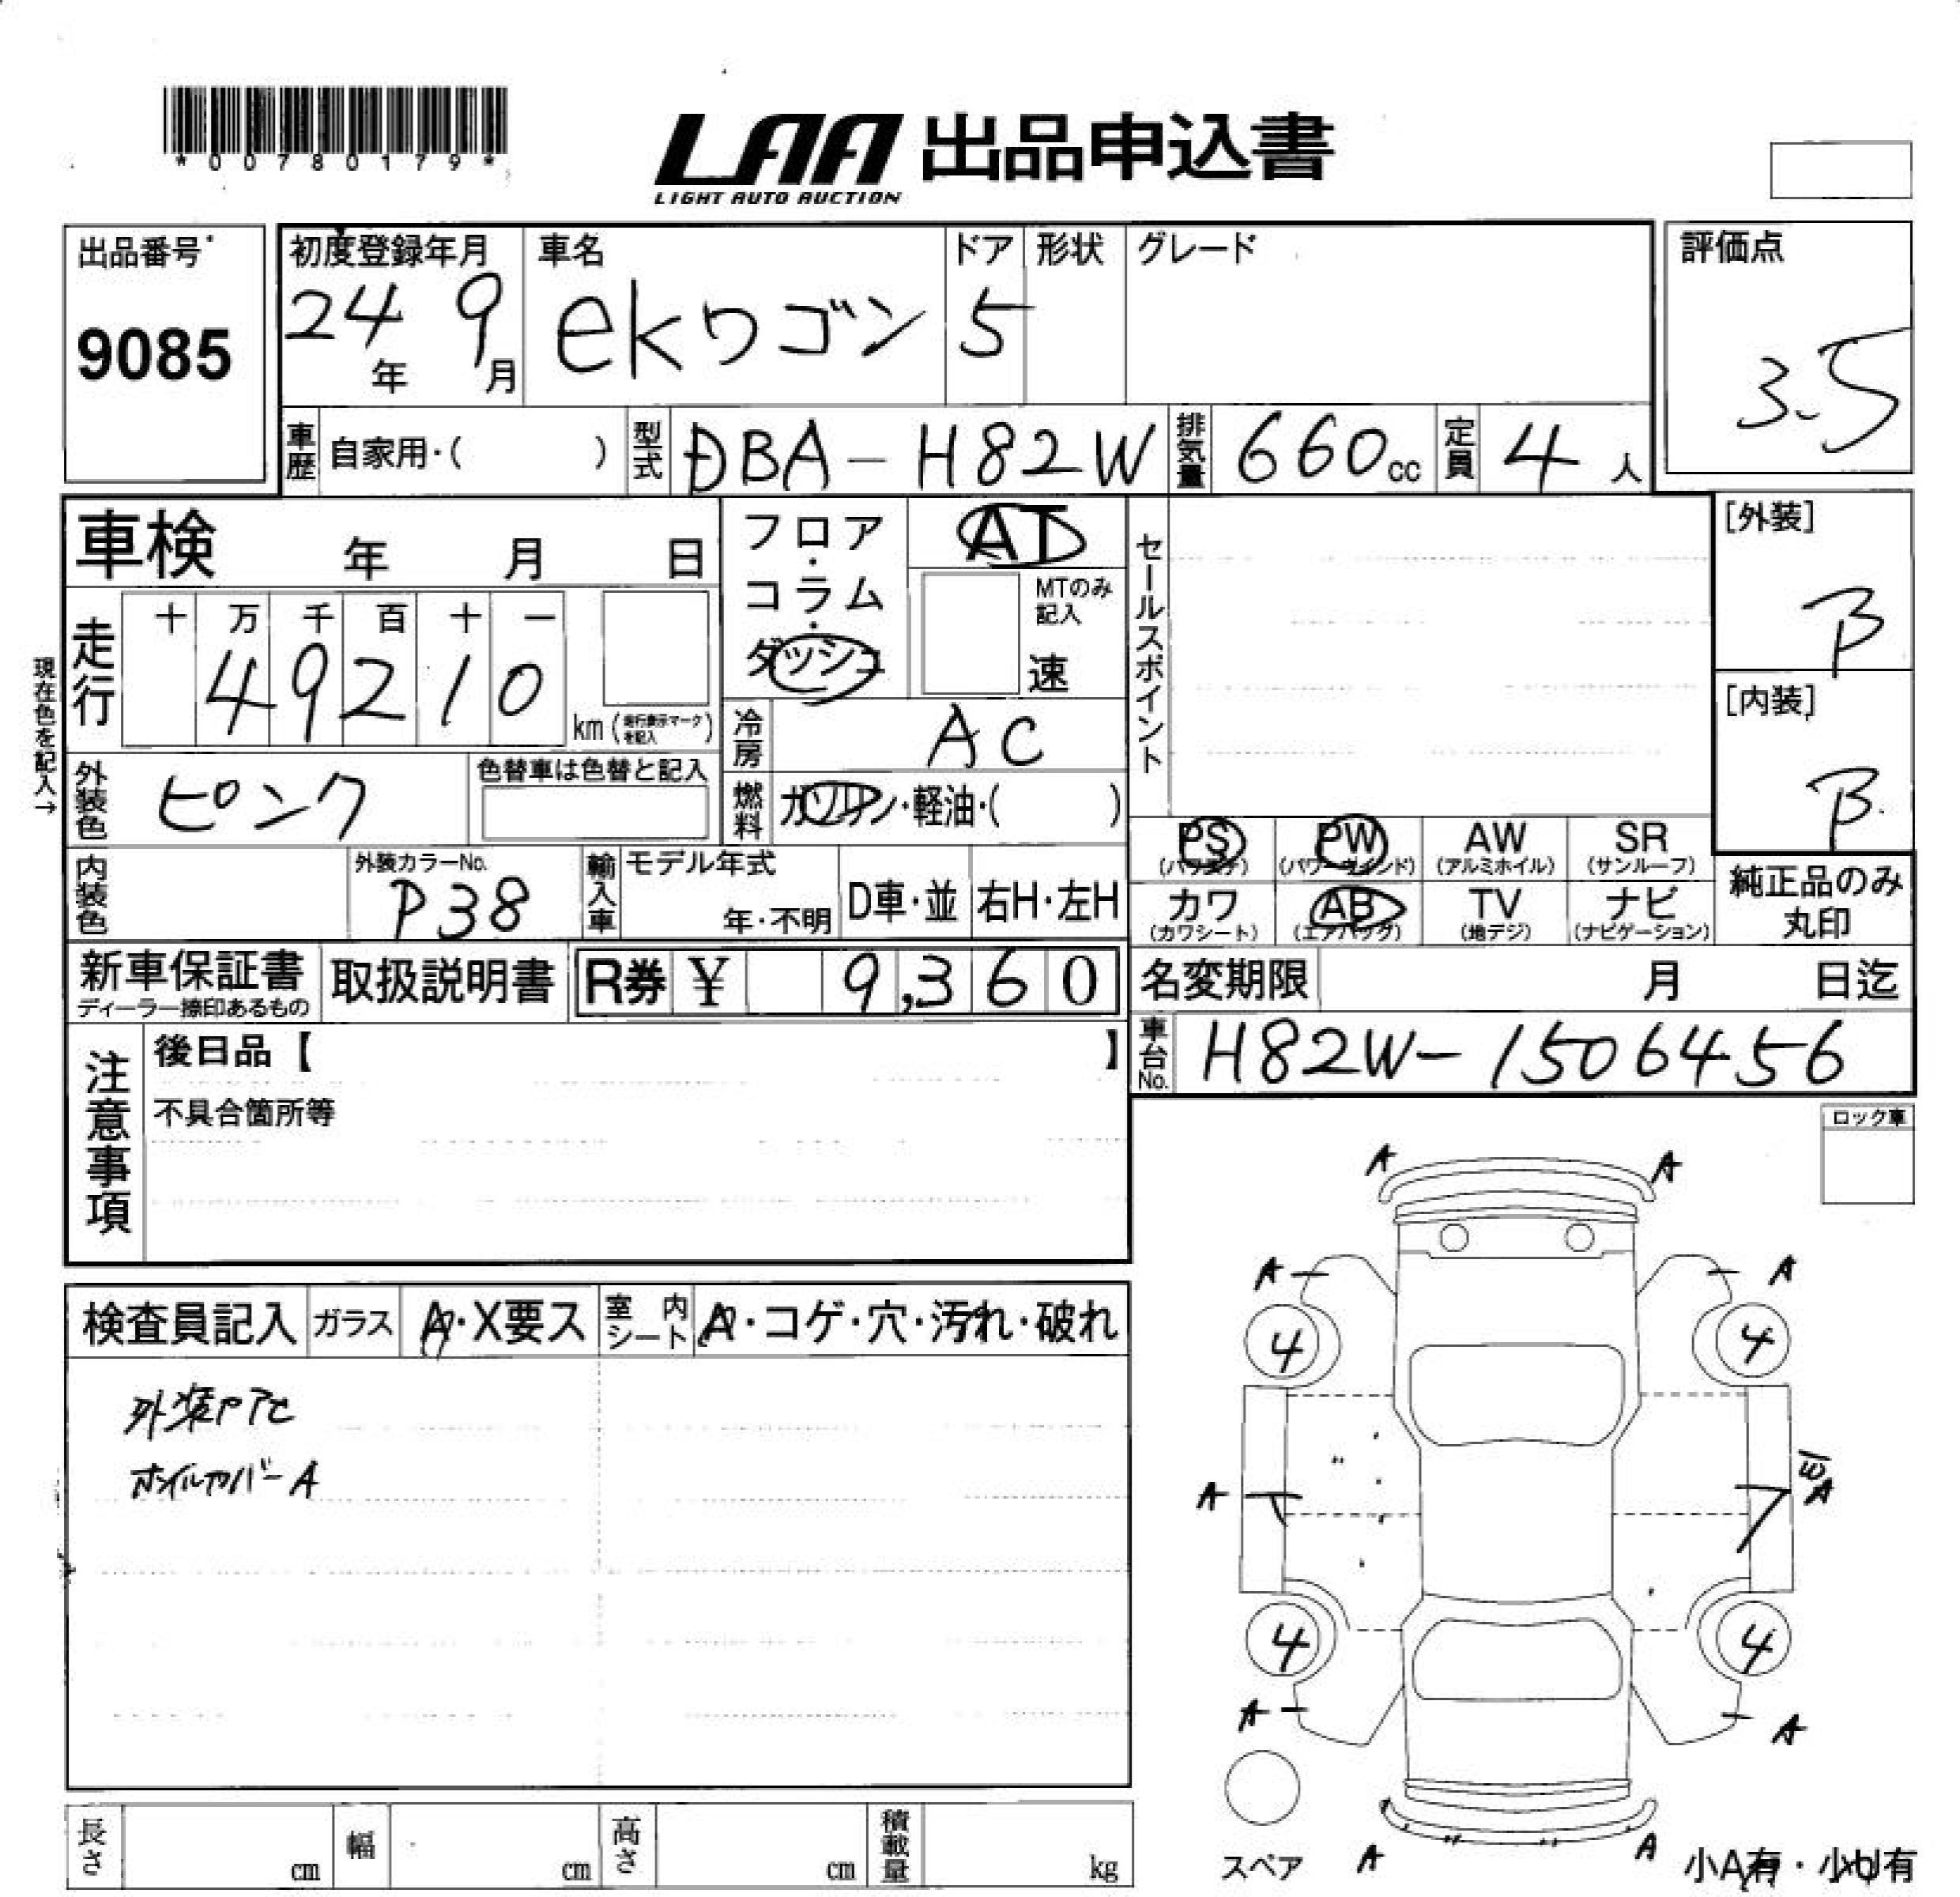 *00780179*
LAA 出品申込書
LIGHT AUTO AUCTION
出品番号
9085
初度登録年月
24年 9月
車名
ekワゴン
ドア
5
形状
グレード
評価点
3.5
車歴 自家用・( )
型式 DBA-H82W
排気量 660cc
定員 4人
車検 年 月 日
フロア・コラム・ダッシュ
AT
MTのみ記入
速
セールスポイント
[外装]
B
[内装]
B
現在色を記入→
走行
十 万 千 百 十 一
49210
km (走行表示マークを記入)
冷房 AC
外装色 ピンク
色替車は色替と記入
燃料 ガソリン・軽油・( )
PS (パワステ)
PW (パワーウィンド)
AW (アルミホイル)
SR (サンルーフ)
カワ (カワシート)
AB (エアバッグ)
TV (地デジ)
ナビ (ナビゲーション)
純正品のみ丸印
内装色
外装カラーNo.
P38
輸入車
モデル年式
年・不明
D車・並
右H・左H
新車保証書
ディーラー捺印あるもの
取扱説明書
R券 ¥ 9,360
名変期限 月 日迄
車台No. H82W-1506456
注意事項
後日品【 】
不具合箇所等
ロック車
検査員記入
ガラス A・X要ス
室内シート A・コゲ・穴・汚れ・破れ
ホイルカバーA
A A
A A
4 4
A A
4 4
A A
A A
スペア
小A有・小U有
長さ cm
幅 cm
高さ cm
積載量 kg